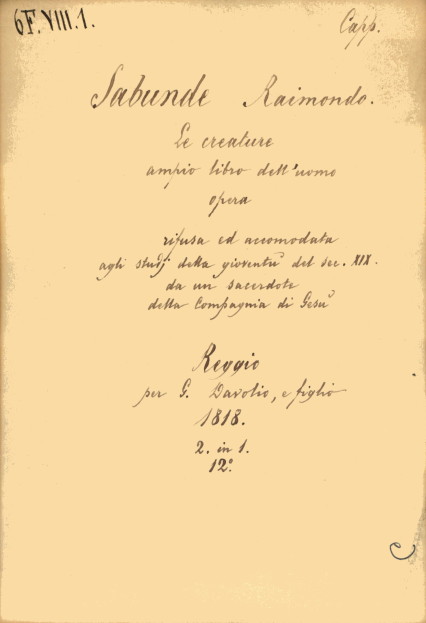 6F.VIII.1.
Capp.
Sabunde Raimondo.
Le creature
ampio libro dell'uomo
opera
rifusa ed accomodata
agli studj della gioventù del sec. XIX.
da un sacerdote
della Compagnia di Gesù
Reggio
per G. Davolio, e figlio
1818.
2. in 1.
12°.